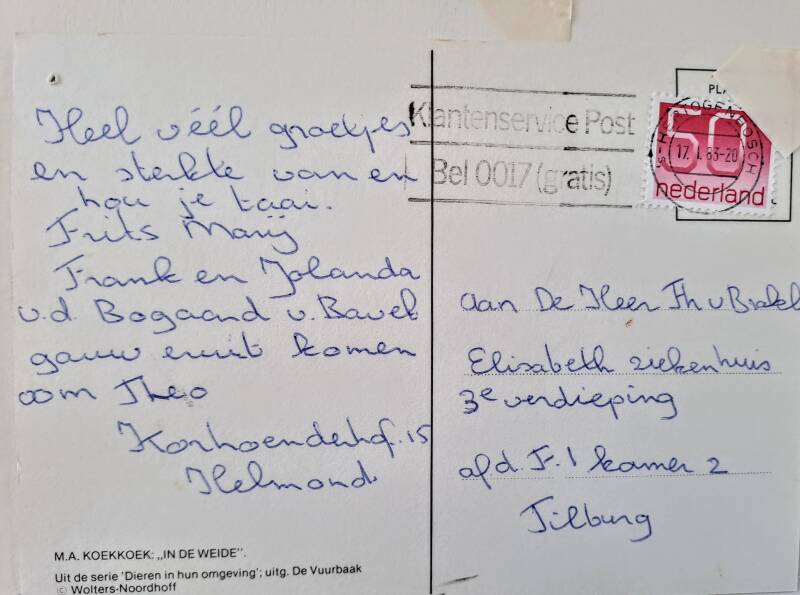 Heel véél groetjes
en sterkte van en
hou je taai.
Frits Marij
Frank en Jolanda
v.d. Bogaard v. Bavel
gauw eruit komen
oom Theo
Korhoenderhof. 15
Helmond
M.A. KOEKKOEK: „IN DE WEIDE".
Uit de serie 'Dieren in hun omgeving'; uitg. De Vuurbaak
© Wolters-Noordhoff
Klantenservice Post
Bel 0017 (gratis)
17. 1. 83-20
60
nederland
aan De Heer Th v Brakel
Elisabeth ziekenhuis
3e verdieping
afd. F.1 kamer 2
Tilburg